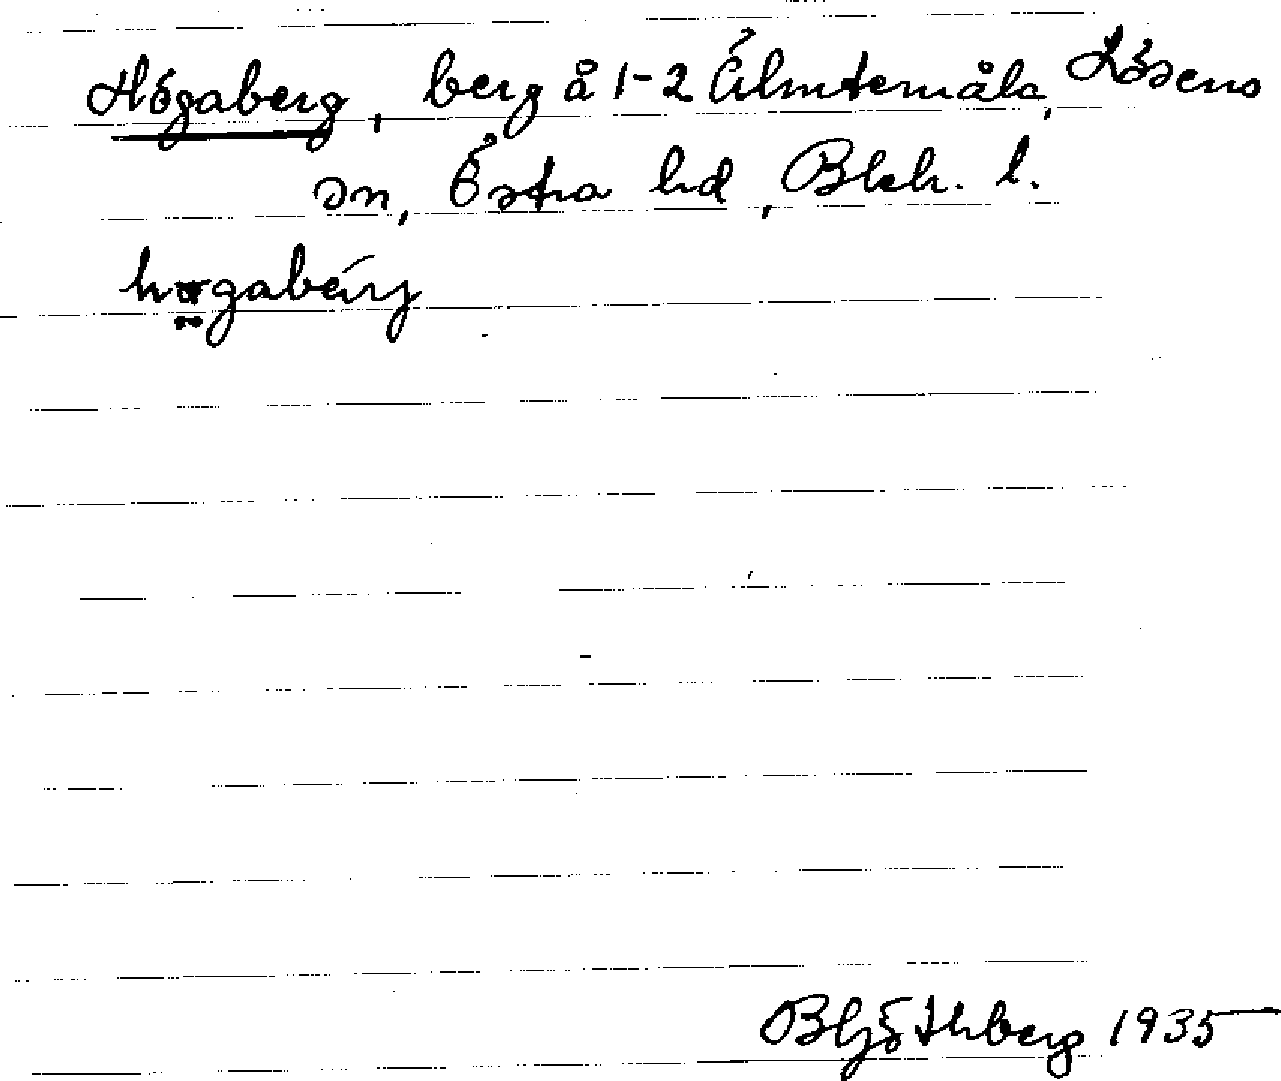 Högaberg, berg å 1-2 Älmtemåla, Lösens
sn, Östra hd, Blek. l.
Bj Göthberg 1935